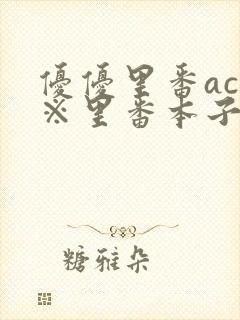 優優里番ac
※里番本子
糖雅朵